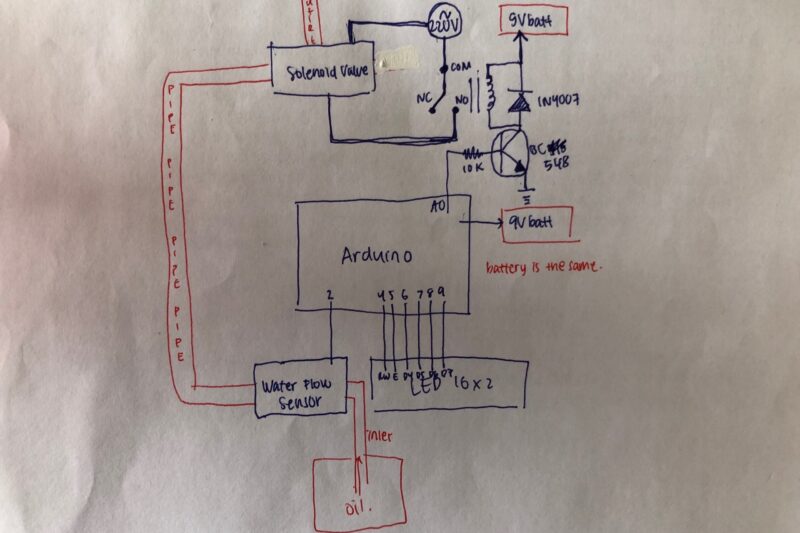 220V
9V batt
Solenoid Valve
COM
NC
NO
1N4007
BC
548
10K
A0
9V batt
battery is the same.
Arduino
2
4 5 6 7 8 9
PIPE PIPE PIPE PIPE
Water Flow
Sensor
RW E D4 D5 D6 D7
LED 16x2
inlet
oil.